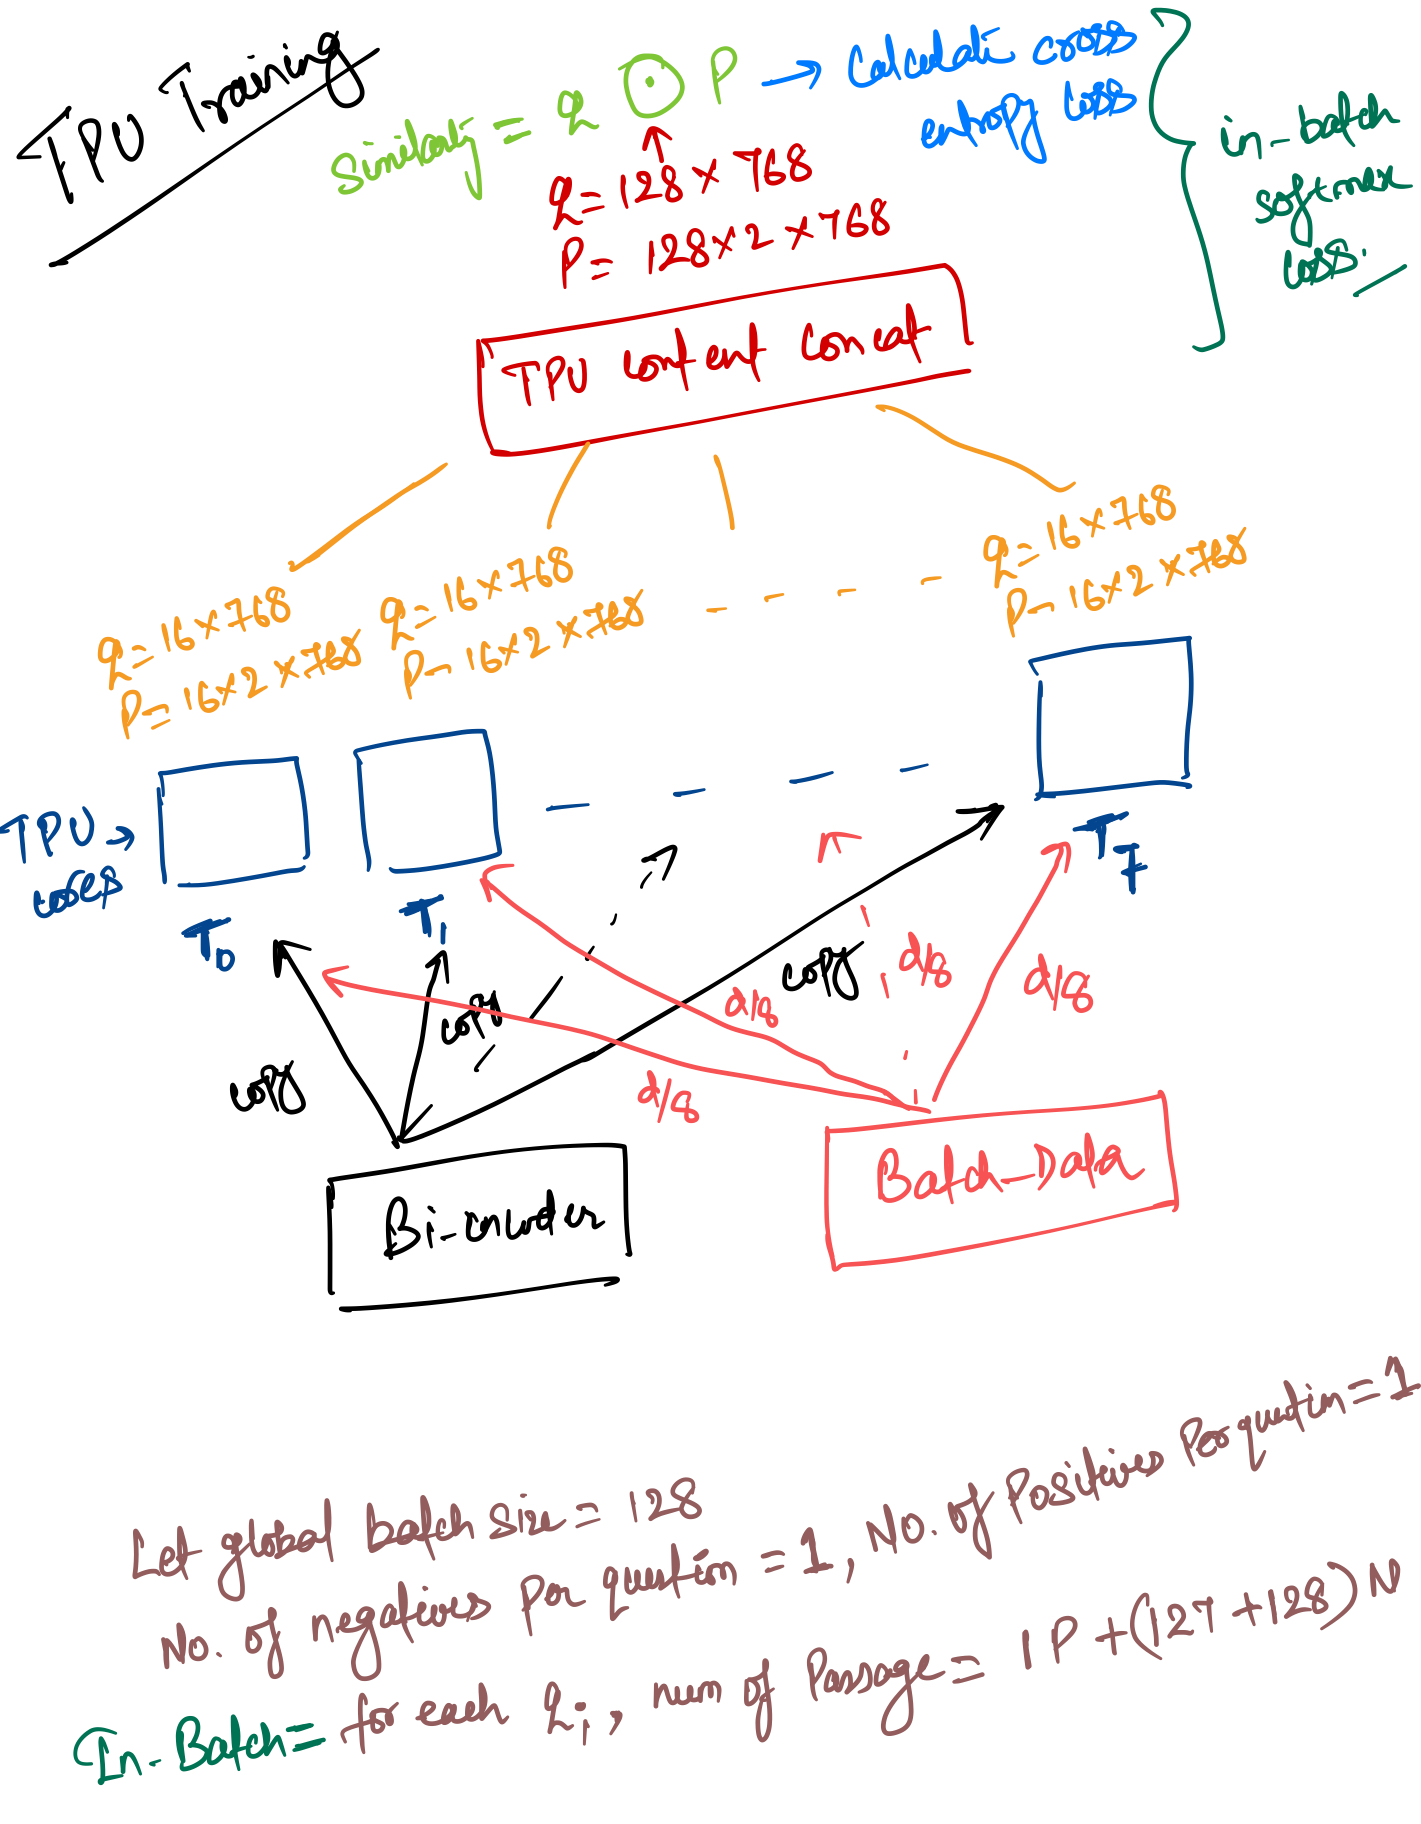 TPU Training
Similarity = q ⊙ P → Calculate cross
entropy loss
in-batch
softmax
loss.
q = 128 × 768
P = 128×2 × 768
TPU content Concat
q = 16 × 768
P = 16×2 × 768
q = 16 × 768
P = 16×2 × 768
q = 16 × 768
P = 16×2 × 768
TPU →
cores
T0
T1
T7
copy
copy
copy
d/8
d/8
d/8
d/8
Bi-encoder
Batch_Data
Let global batch size = 128
No. of negatives per question = 1, No. of Positives Per question = 1
In-Batch = for each qi, num of Passage = 1P + (127 + 128) N